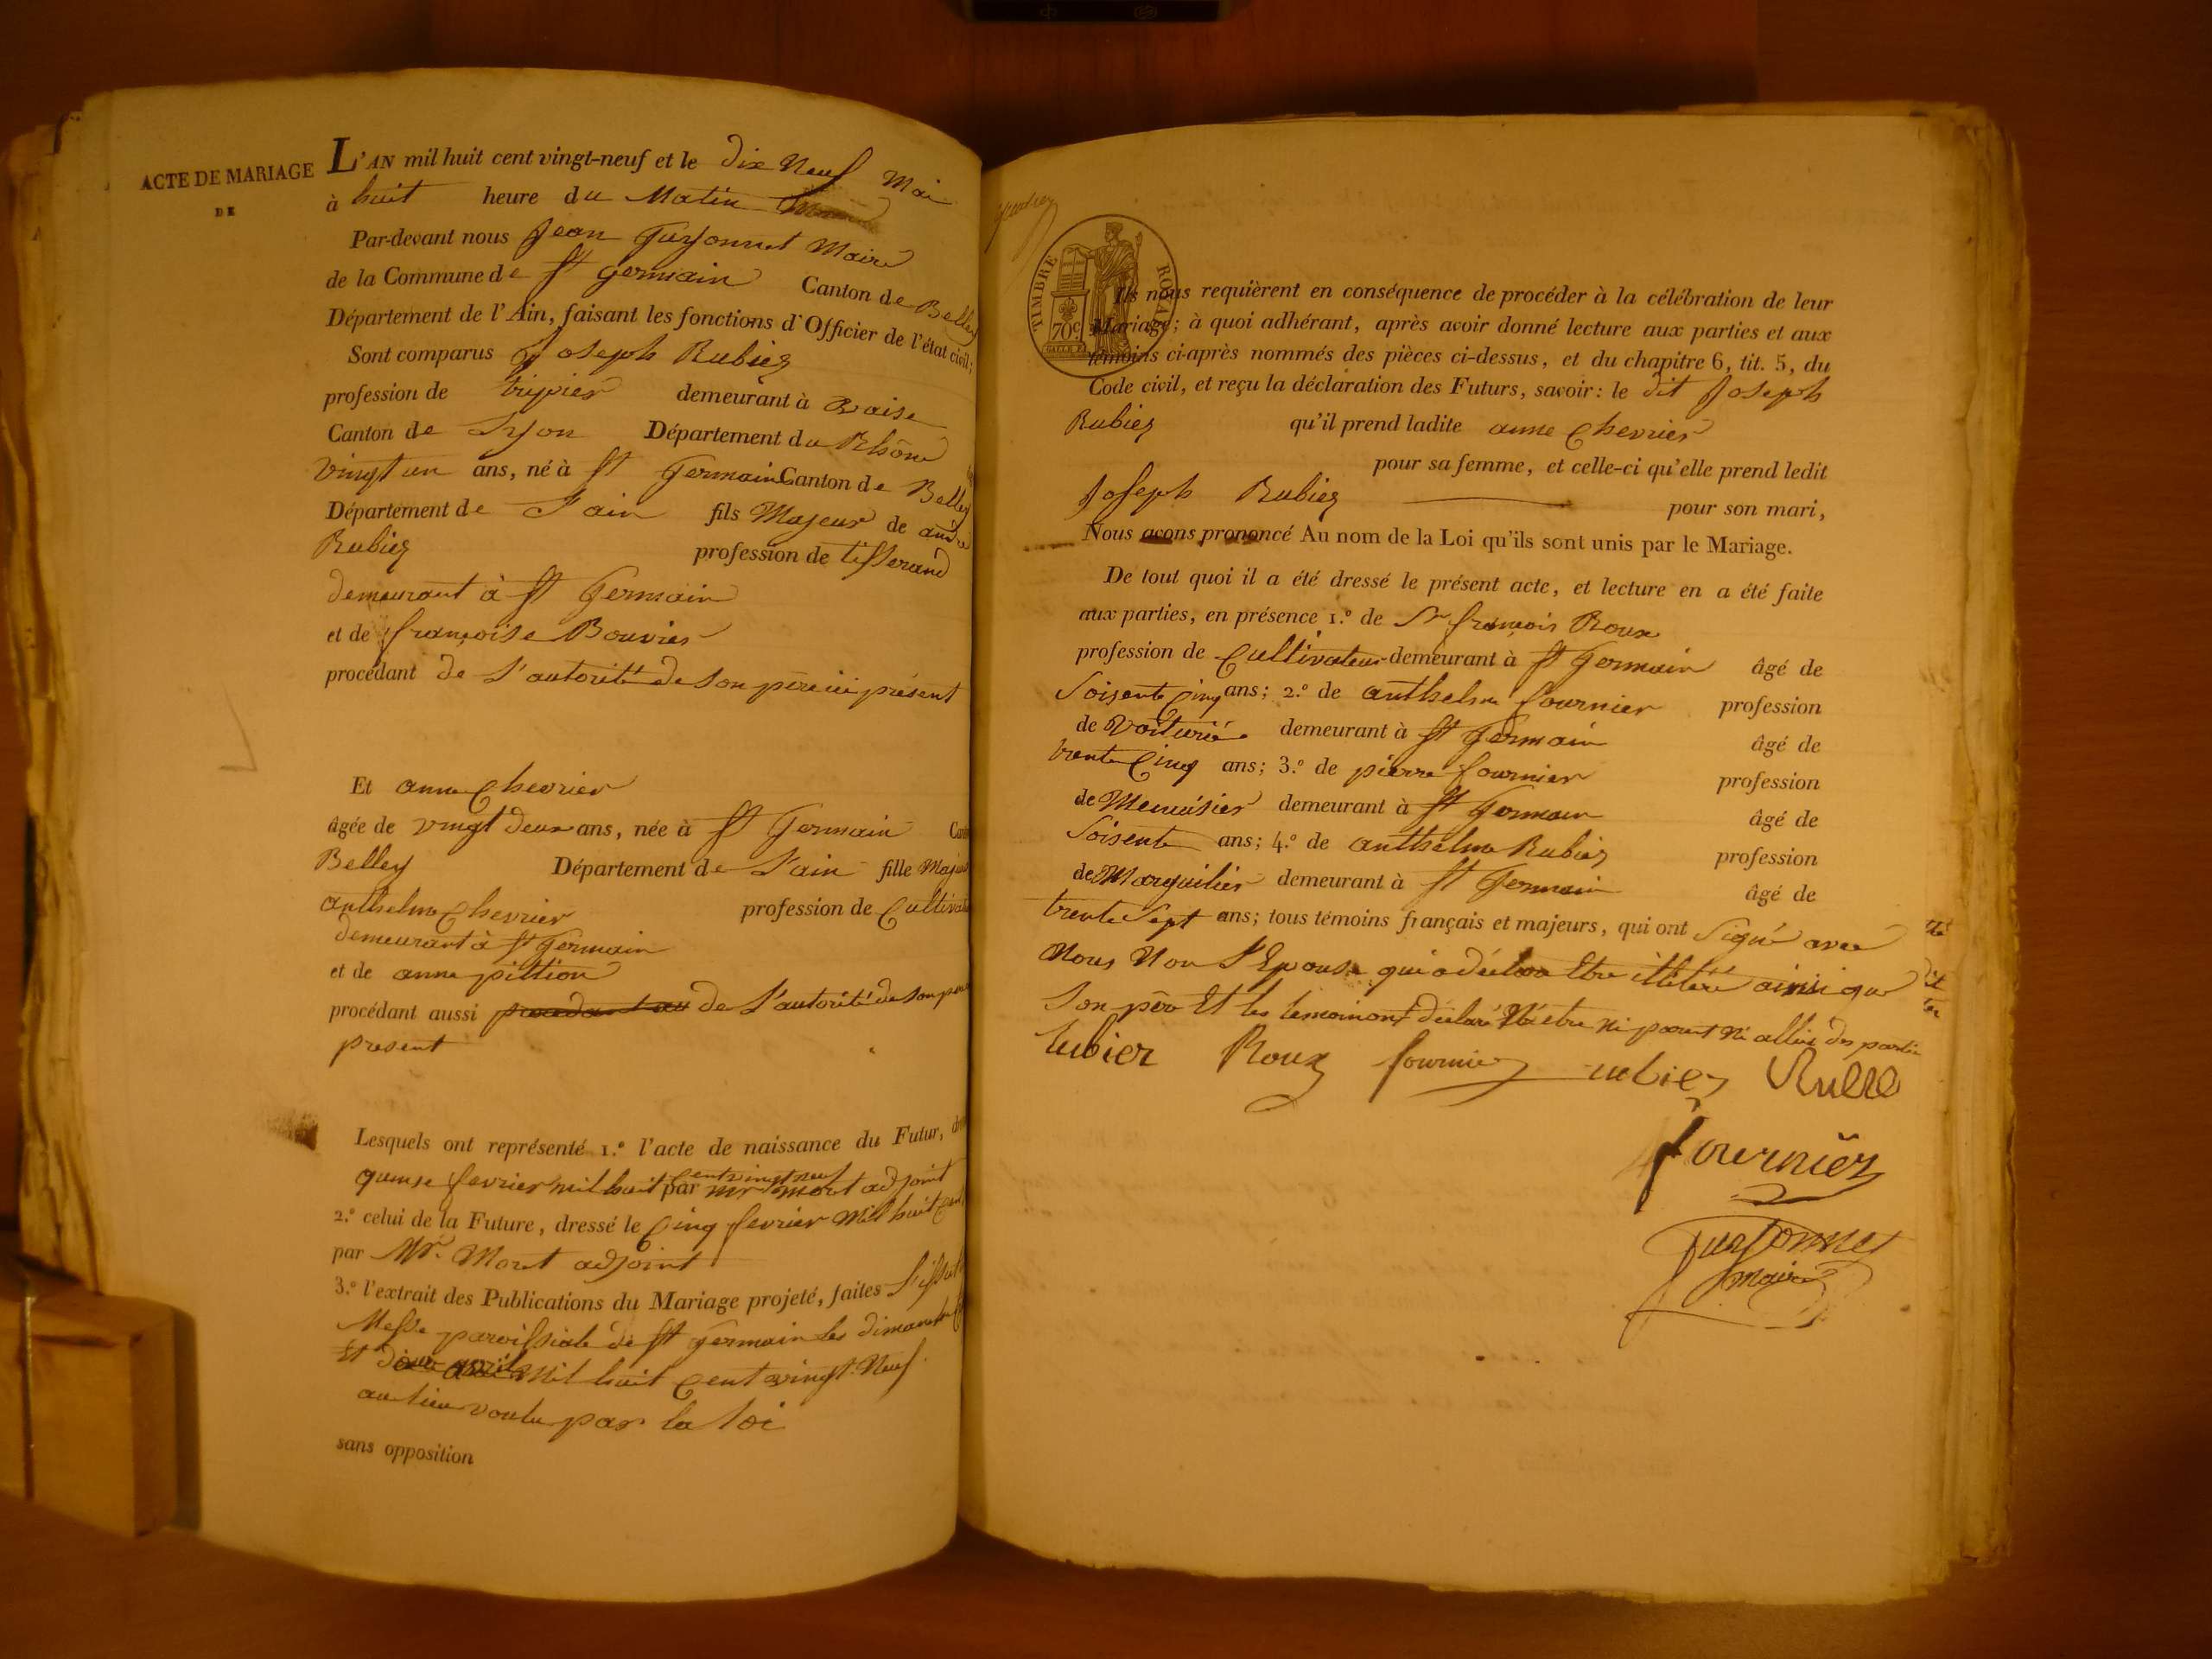 ACTE DE MARIAGE
DE
L'AN mil huit cent vingt-neuf et le dix Neuf Mai
à huit heure du Matin
Par-devant nous Jean Guysonnet Maire
de la Commune de St Germain Canton de Belley
Département de l'Ain, faisant les fonctions d'Officier de l'état civil;
Sont comparus Joseph Rubiez
profession de tripier demeurant à Vaise
Canton de Lyon Département du Rhône
Vingt un ans, né à St Germain Canton de Belley
Département de L'ain fils Majeur de andré
Rubiez profession de tisserand
demeurant à St Germain
et de françoise Bouvier
procédant de L'autorité de son père ici présent
Et anne Chevrier
âgée de vingt deux ans, née à St Germain
Belley Département de L'ain fille
anthelme Chevrier profession de
demeurant à St Germain
et de anne pittion
procédant aussi de L'autorité de son
present
Lesquels ont représenté 1.° l'acte de naissance du Futur,
quinze fevrier mil huit cent vingt neuf par mr Mort adjoint
2.° celui de la Future, dressé le Cinq fevrier Mil huit
par Mr. Mort adjoint
3.° l'extrait des Publications du Mariage projeté, faites
Messe paroissiale de St Germain les dimanche
Et Mil huit Cent vingt Neuf
au lieu voulu par la loi
sans opposition
TIMBRE ROYAL
70c.
Ils nous requièrent en conséquence de procéder à la célébration de leur
Mariage; à quoi adhérant, après avoir donné lecture aux parties et aux
témoins ci-après nommés des pièces ci-dessus, et du chapitre 6, tit. 5, du
Code civil, et reçu la déclaration des Futurs, savoir: le dit Joseph
Rubiez qu'il prend ladite anne Chevrier
pour sa femme, et celle-ci qu'elle prend ledit
Joseph Rubiez pour son mari,
Nous avons prononcé Au nom de la Loi qu'ils sont unis par le Mariage.
De tout quoi il a été dressé le présent acte, et lecture en a été faite
aux parties, en présence 1.° de Sr françois Roux
profession de Cultivateur demeurant à St Germain âgé de
Soisente Cinq ans; 2.° de anthelme fournier profession
de Voiturié demeurant à St Germain âgé de
trente Cinq ans; 3.° de pierre fournier profession
de Menuisier demeurant à St Germain âgé de
Soisente ans; 4.° de anthelme Rubiez profession
de Marguilier demeurant à St Germain âgé de
trente Sept ans; tous témoins français et majeurs, qui ont Signé avec
Nous Non L'Epouse qui a déclaré Etre illiteré ainsi que
Son père Et les temoin ont déclaré N'etre ni parent ni allié des partie
Rubier Roux fournier
fournier
Guysonnet
maire